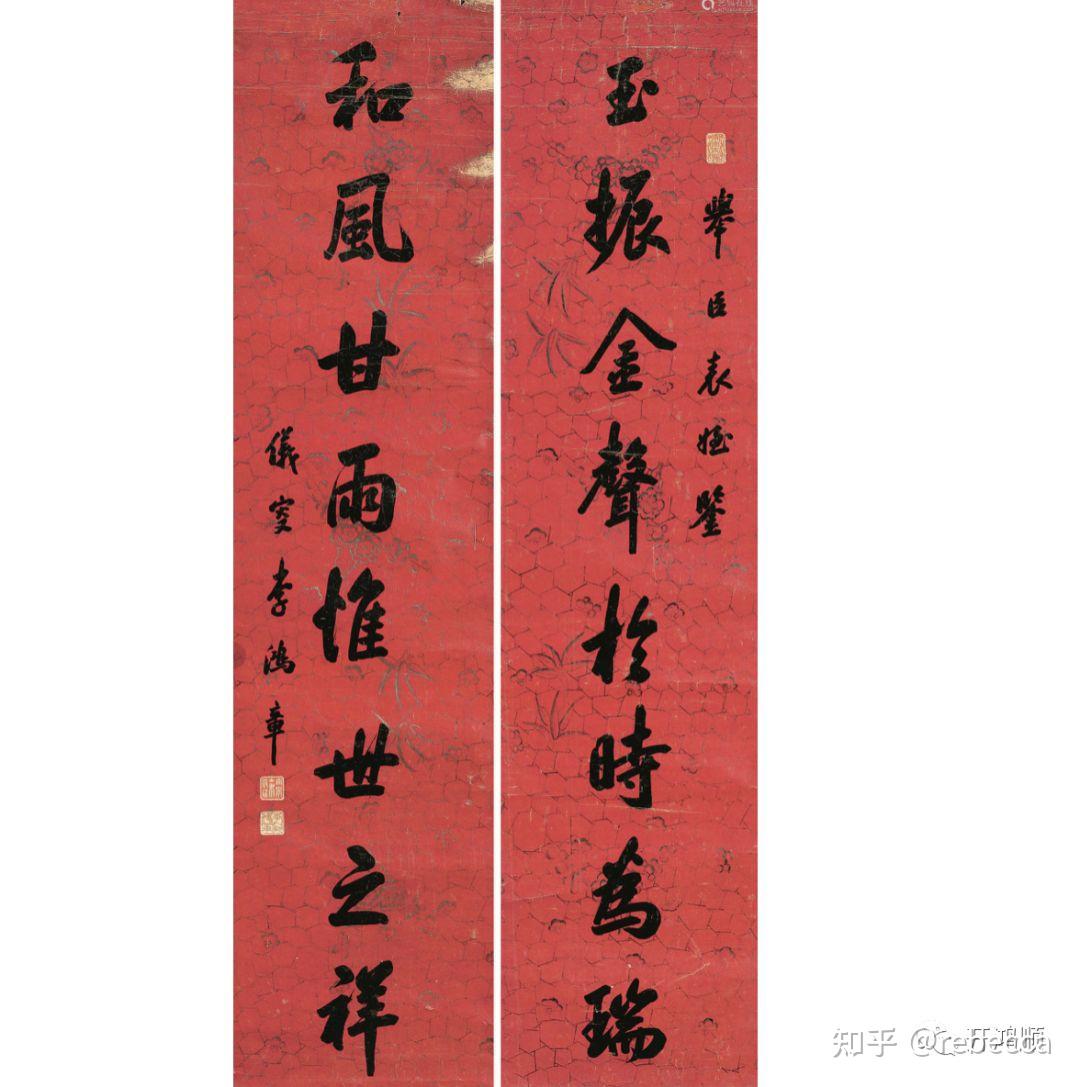 玉振金聲於時為瑞
舉臣表姪鑒
和風甘雨惟世之祥
儀叟李鴻章
知乎 @rebecca